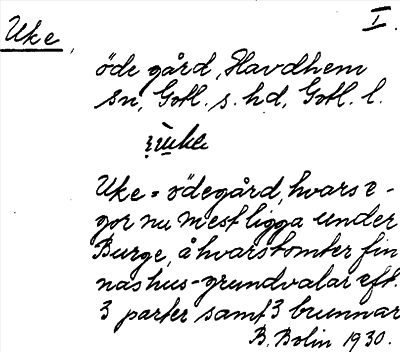 Uke, I.
öde gård, Havdhem
sn, Gotl. s. hd, Gotl. l.
Uke = ödegård, hvars e-
gor nu mest ligga under
Burge, å hvars tomter fin
nas hus-grundvalar eft.
3 parter samt 3 brunnar
B. Bolin 1930.